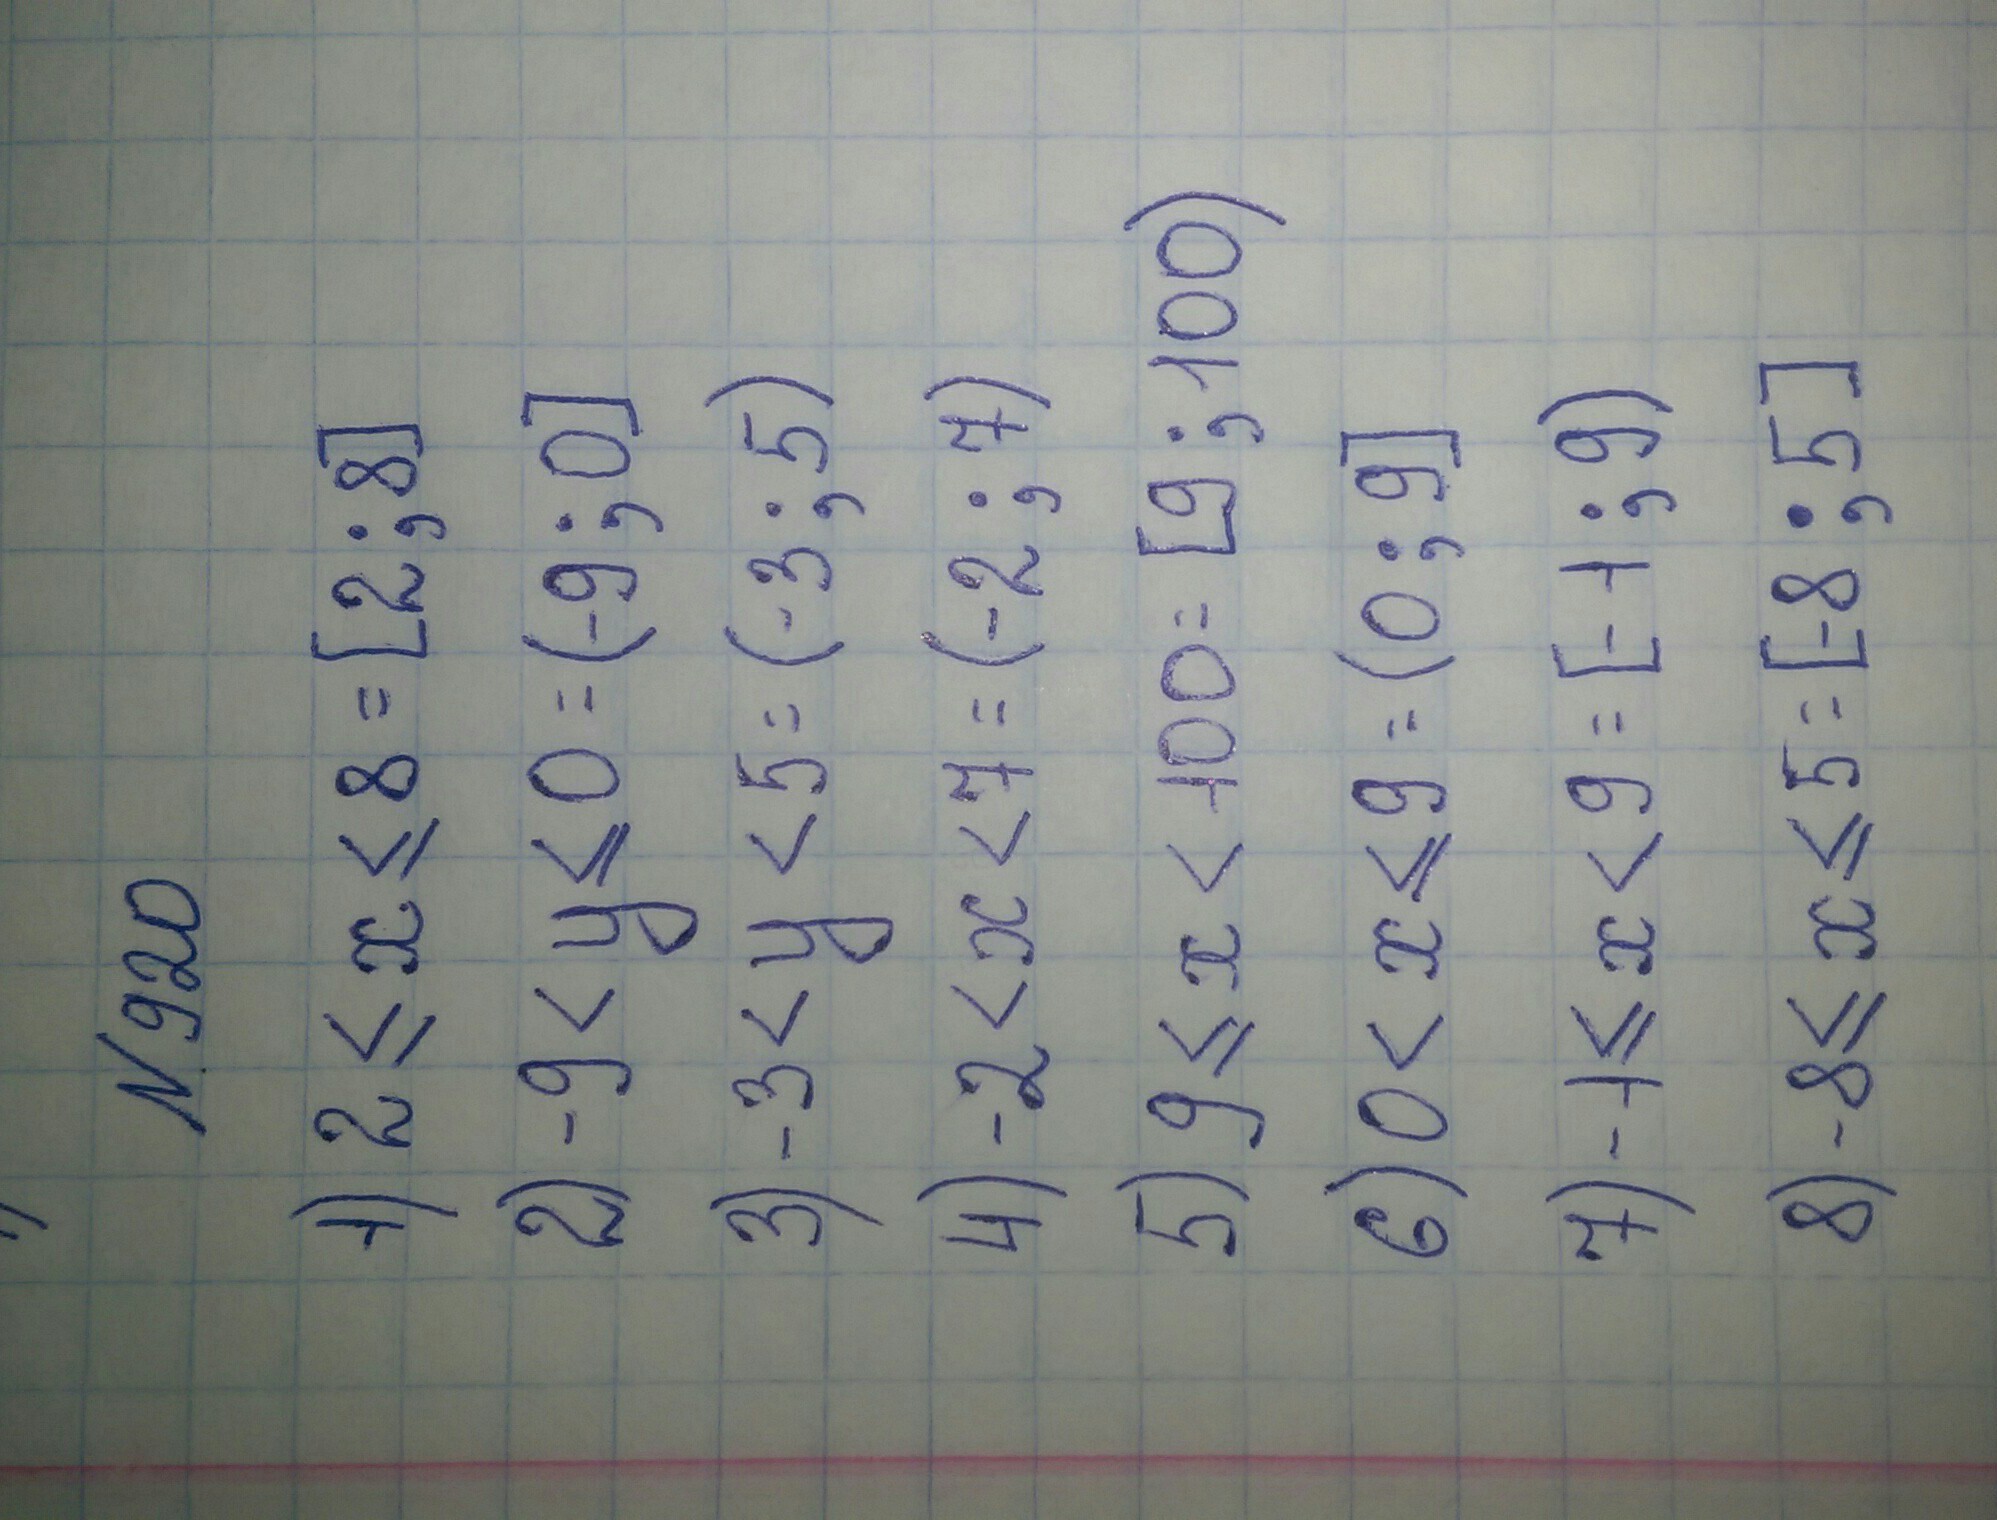 N 920
1) 2 ≤ x ≤ 8 = [2 ; 8]
2) -9 < y ≤ 0 = (-9 ; 0]
3) -3 < y < 5 = (-3 ; 5)
4) -2 < x < 7 = (-2 ; 7)
5) 9 ≤ x < 100 = [9 ; 100)
6) 0 < x ≤ 9 = (0 ; 9]
7) -1 ≤ x < 9 = [-1 ; 9)
8) -8 ≤ x ≤ 5 = [-8 ; 5]